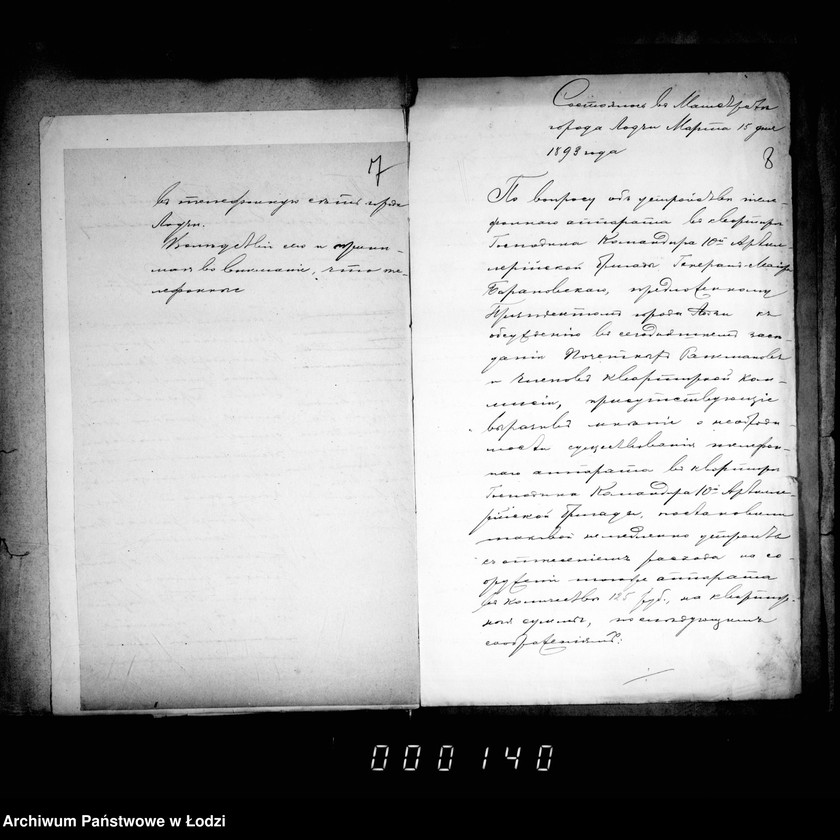 7
въ телефонную сѣть города
Лодзи.
Вслѣдствіе сего и прини-
мая во вниманіе, что те-
лефонные
Состоялось въ Магистратѣ
города Лодзи Марта 15 дня
1893 года
8
По вопросу объ устройствѣ теле-
фоннаго аппарата въ квартирѣ
Господина Командира 10й Артил-
лерійской бригады Генералъ-Маіора
Барановскаго, предложенному
Президентомъ города Лодзи къ
обсужденію въ сегодняшнемъ засѣ-
даніи Почетныхъ Ратмановъ
и Членовъ квартирной ком-
мисіи, присутствующіе
выразивъ мнѣніе о необходи-
мости существованія телефон-
наго аппарата въ квартирѣ
Господина Командира 10й Артилле-
рійской бригады, постановили
таковой немедленно устроить
съ отнесеніемъ расхода по со-
оруженію того же аппарата
въ количествѣ 125 руб., на квартир-
ныя суммы, по слѣдующимъ
соображеніямъ:
000140
Archiwum Państwowe w Łodzi